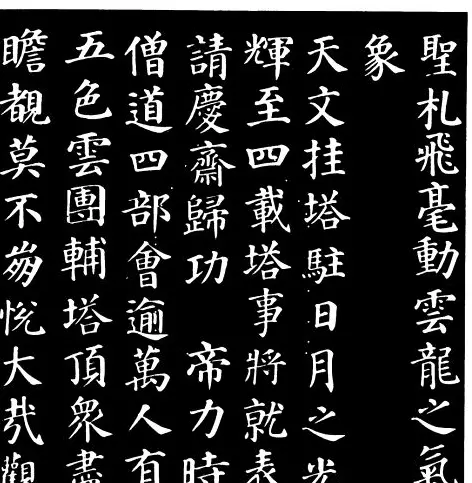 聖札飛毫動雲龍之氣
象
天文挂塔駐日月之光
輝至四載塔事將就表
請慶齋歸功 帝力時
僧道四部會逾萬人有
五色雲團輔塔頂衆盡
瞻覩莫不崩悅大哉觀